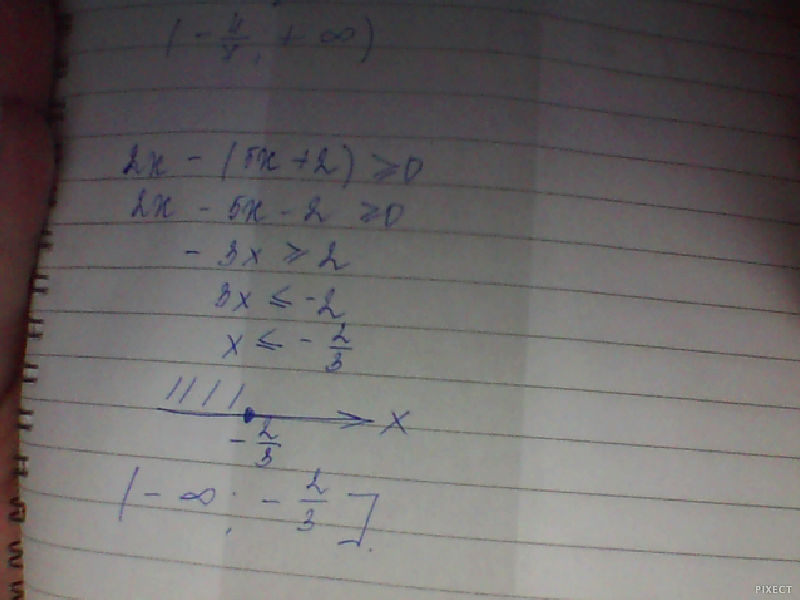 2x - (5x + 2) ≥ 0
2x - 5x - 2 ≥ 0
- 3x ≥ 2
3x ≤ -2
x ≤ - 2/3
x
- 2/3
(- ∞ ; - 2/3].
PIXECT